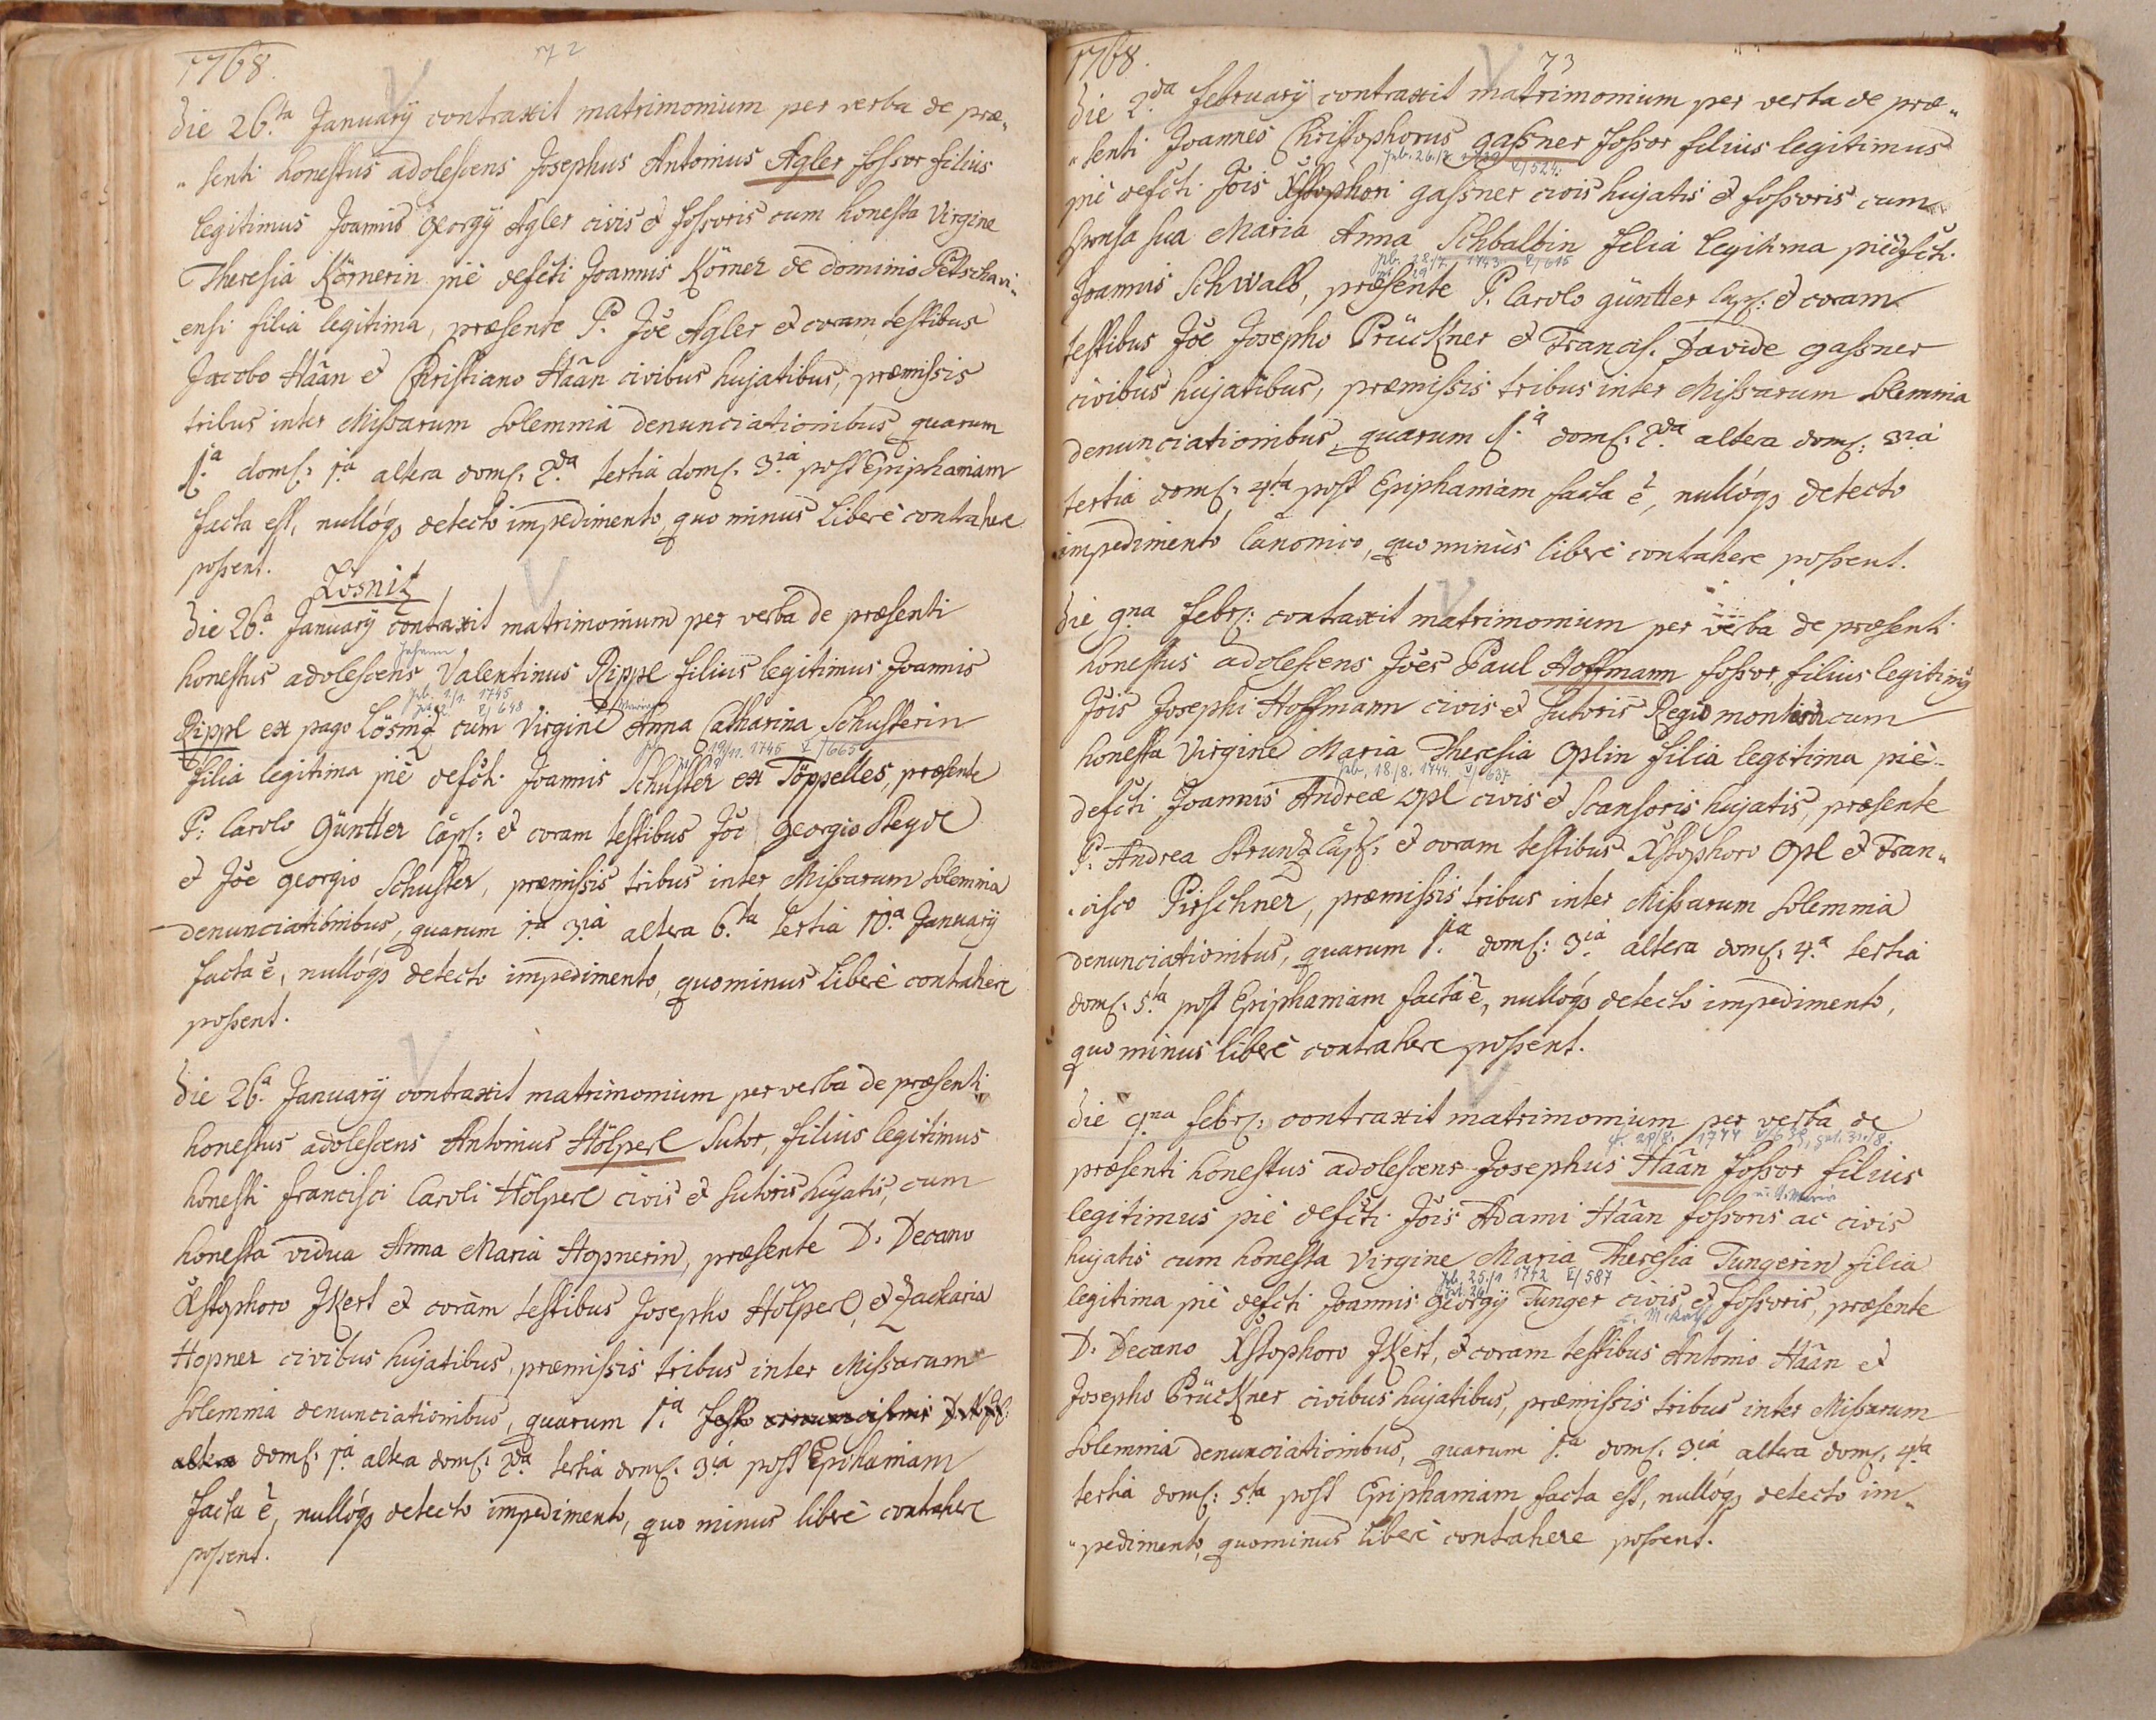 1768.
72
Die 26.ta Januarÿ contraxit matrimonium per verba de præ„
„senti honestus adolescens Josephus Antonius Agler fossor filius
legitimus Joannis Georgÿ Agler civis et fossoris cum honesta Virgine
Theresia Körnerin piè defcti Joannis Körner de dominio Petschavi„
„ensi filia legitima, præsente P. Jõe Agler et coram testibus
Jacobo Häan et Christiano Häan civibus hujatibus, præmissis
tribus inter Missarum Solemnia denunciationibus quarum
1.a domc: 1.a altera domc. 2.da tertia domc. 3.ia post Epiphaniam
facta est, nullóq3 detecto impedimento, quo minus liberè contrahere
possent.
Lösnitz
Die 26.a Januarÿ contraxit matrimonium per verba de præsenti
Johann
honestus adolescens Valentinus Rippl filius legitimus Joannis
geb. 1/1. 1745
get. 2. V/648
Maria
Rippl ex pago Lösnig cum Virgine Anna Catharina Schusterin
19/11. 1745 V/665
filia legitima piè defcti Joannis Schuster ex Töppelles, præsente
P: Carolo Güntter Capl: et coram testibus Jõe Georgio Steydl
et Jõe Georgio Schuster, præmissis tribus inter Missarum Solemnia
denunciationibus, quarum 1.a 3.ia altera 6.ta tertia 10.a Januarÿ
facta ẽ, nullóq3 detecto impedimento, quominus liberè contrahere
possent.
Die 26.a Januarÿ contraxit matrimonium per verba de præsenti
honestus adolescens Antonius Hölperl Sutor, filius legitimus
honesti Francisci Caroli Hölperl civis et sutoris hujatis, cum
honesta vidua Anna Maria Hopnerin, præsente D. Decano
Xstophoro Jkert et coràm testibus Josepho Hölperl, et Zacharia
Hopner civibus hujatibus, præmissis tribus inter Missarum
Solemnia denunciationibus, quarum 1.a festo circumcisionis
altera domc. 1.a altera domc. 2.da tertia domc. 3.ia post Epihaniam
facta ẽ, nullóq3 detecto impedimento, quo minus liberè contrahere
possent.
1768.
73
Die 2.da februarÿ contraxit matrimonium per verba de præ„
„senti Joannes Christophorus gassner fossor filius legitimus
V/524.
piè defcti Jõis Xstophori gassner civis hujatis et fossoris cum
sponsa sua Maria Anna Schbalbin filia legitima piè defcti
geb. 28/7 1743. V/615
29
Joannis Schwalb, præsente P. Carolo güntter Capl: et coram
testibus Jõe Josepho Prückner et Francis. Davide gassner
civibus hujatibus, præmissis tribus inter Missarum Solemnia
denunciationibus, quarum 1.a domc: 2.da altera domc: 3.ia
tertia domc: 4.ta post Epiphaniam facta ẽ, nullóq3 detecto
impedimento Canonico, quo minùs liberè contrahere possent.
Die 9.na febr: contraxit matrimonium per verba de præsenti
honestus adolescens Jões Paul Hoffmann fossor, filius legitimus
Jõis Josephi Hoffmann civis et sutoris Regio montani cum
honesta Virgine Maria Theresia Oplin filia legitima piè
geb. 18/8. 1744 V/637
defcti Joannis Andreæ Opl civis et Scansoris hujatis, præsente
P. Andrea Strunz Capl: et coram testibus Xstophoro Opl et Fran„
„cisco Pirschner, præmissis tribus inter Missarum Solemnia
denunciationibus, quarum 1.a domc: 3.ia altera domc. 4.a tertia
domc. 5.ta post Epiphaniam facta ẽ, nullóq3 detecto impedimento,
quo minus liberè contrahere possent.
Die 9.na febr: contraxit matrimonium per verba de
1744 V/639, get. 31./8.
præsenti honestus adolescens Josephus Häan fossor filius
u. A. Maria
legitimus piè defcti Jõis Adami Häan fossoris ac civis
hujatis cum honesta Virgine Maria Theresia Tungerin filia
geb. 25./1 1742 V/587
legitima piè defcti Joannis Georgÿ Tunger civis et fossoris, præsente
D. Decano Xstophoro Jkert, et coram testibus Antonio Häan et
Josepho Prückner civibus hujatibus, præmissis tribus inter Missarum
Solemnia denunciationibus, quarum 1.a domc. 3.ia altera domc. 4.ta
tertia domc: 5.ta post Epiphaniam facta est, nullóq3 detecto im„
„pedimento, quominus liberè contrahere possent.